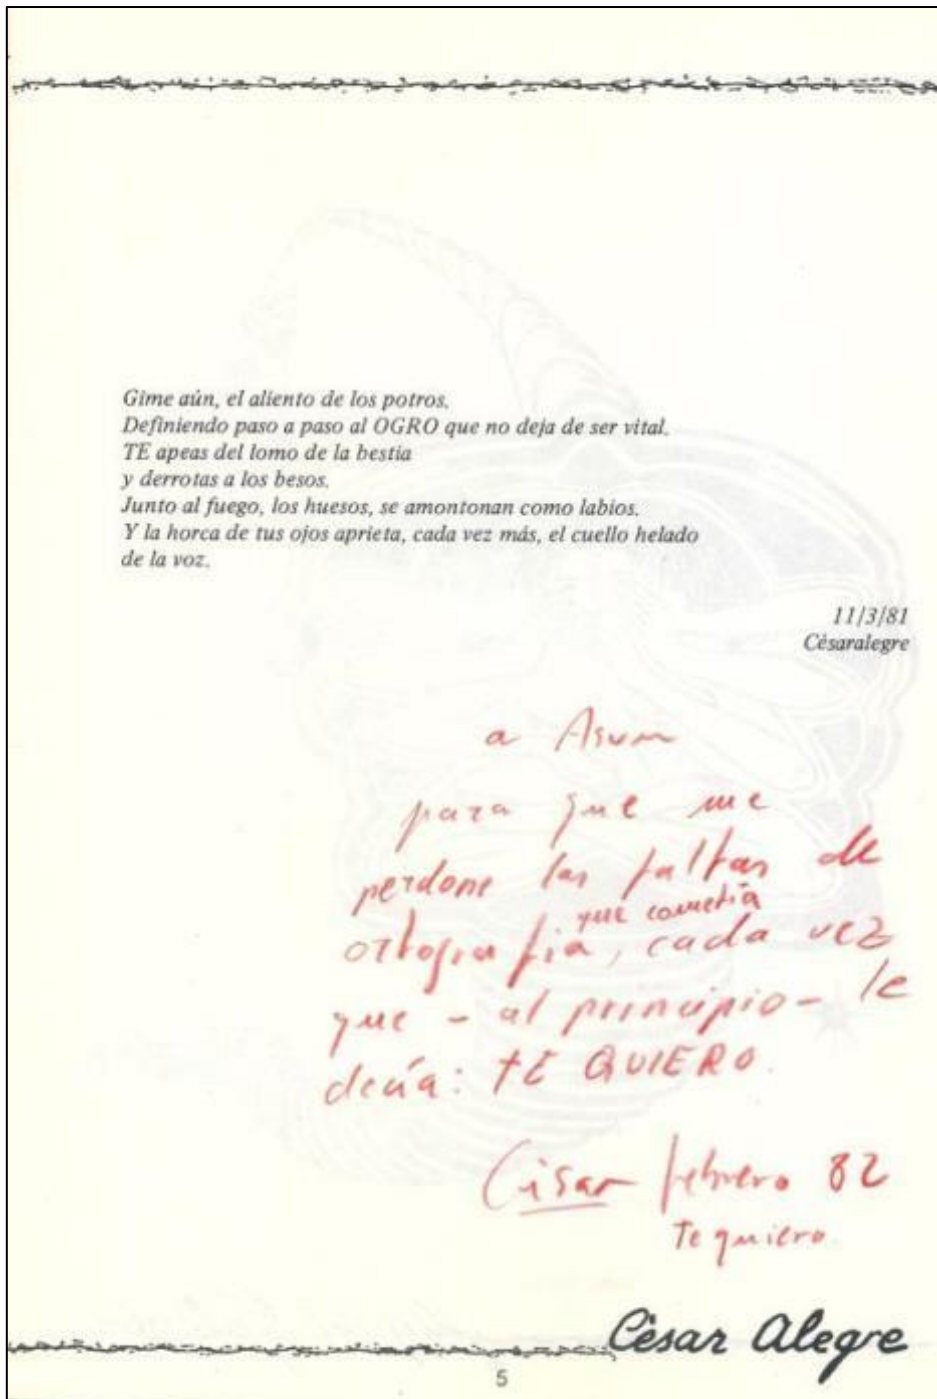 Gime aún, el aliento de los potros.
Definiendo paso a paso al OGRO que no deja de ser vital.
TE apeas del lomo de la bestia
y derrotas a los besos.
Junto al fuego, los huesos, se amontonan como labios.
Y la horca de tus ojos aprieta, cada vez más, el cuello helado
de la voz.
11/3/81
Césaralegre
a Asun
para que me
perdone las faltas de
que cometía
ortografía, cada vez
que - al principio - le
decía: TE QUIERO.
César febrero 82
Te quiero.
César Alegre
5